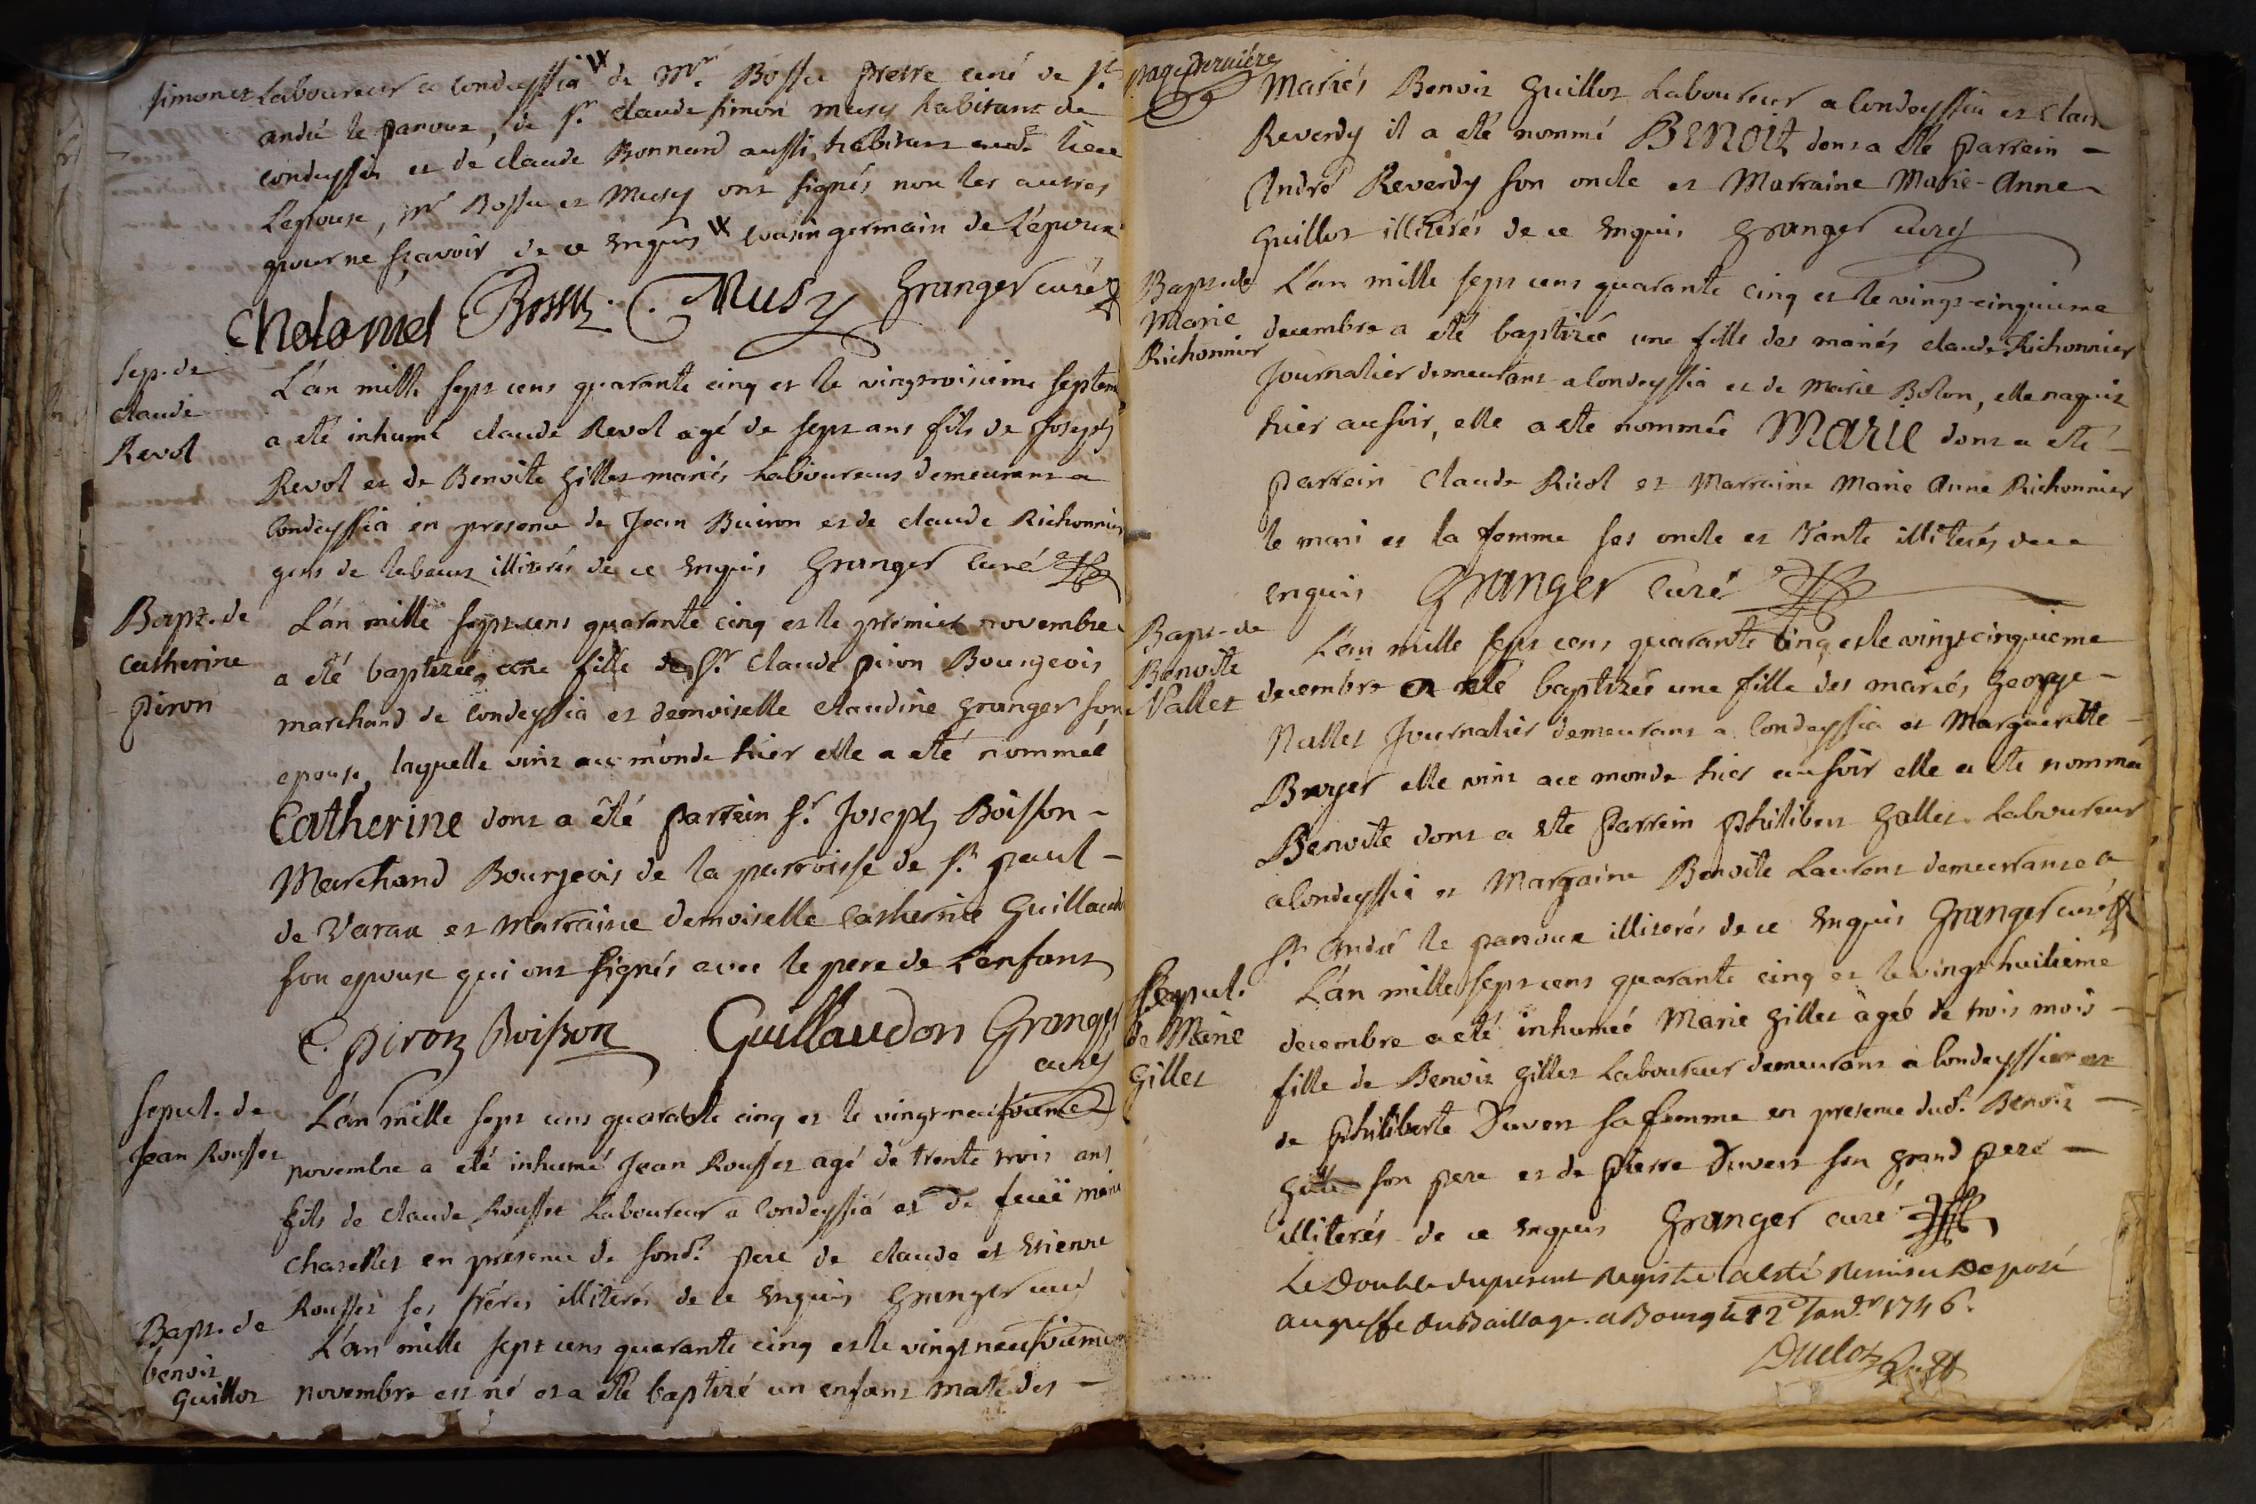 simonet
Laboureur a Condeyssia de Mr. Bossu pretre curé de St.
andré le panoux, de Sr. claude simon musy habitant de
condeyssia et de claude Bonnard aussi habitant audt. lieu
L'epouse, Mr Bossu et Musy ont signés non les autres
pour ne sçavoir de ce enquis cousin germain de L'epoux
Chalamel Bossu. C. Musy Granger curé
sep. de
claude
Revol
L'an mille sept cens quarante cinq et le vingtroisieme septem
a eté inhumé claude Revol agé de sept ans fils de Joseph
Revol et de Benoite Gillet mariés Laboureurs demeurans a
Condeyssia en presence de Jean Buiron et de claude Richonnier
gens de labeur illiterés de ce enquis Granger Curé
Bapt. de
Catherine
piron
L'an mille sept cens quarante cinq et le premier novembre
a eté baptizée une fille de Sr. Claude piron Bourgeois
marchand de Condeyssia et demoiselle claudine Granger son
epouse, laquelle vint au monde hier elle a eté nommée
Catherine dont a été parrein Sr. Joseph Boisson -
Marchand Bourgeois de la parroisse de St. paul -
de Varax et marraine demoiselle Catherine Guillaudon
son epouse qui ont signés avec le pere de L'enfant
C. piron Boisson Guillaudon Granger
curé
sepul. de
Jean Rousset
L'an mille sept cens quarante cinq et le vingt-neufvieme
novembre a eté inhumé Jean Rousset agé de trente trois ans
fils de claude Rousset Laboureur a Condeyssia et de feuë marie
Chaselles en présence de sond. pere de claude et Etienne
Rousset ses fréres illiterés de ce enquis Granger curé
Bapt. de
benoit
Guillot
L'an mille sept cens quarante cinq et le vingt neufvieme
novembre est né et a eté baptizé un enfant mâle des -
page derniére
Mariés Benoit Guillot Laboureur a Condeyssia et Clau
Reverdy il a eté nommé BENOIT dont a eté parrein -
André Reverdy son oncle et Marraine Marie-Anne
Guillot illiterés de ce enquis Granger curé
Bapt. de
Marie
Richonnier
L'an mille sept cens quarante cinq et le vingt-cinquieme
decembre a eté baptizée une fille des mariés claude Richonnier
Journalier demeurant a Condeyssia et de Marie Bolon, elle naquit
hier au soir, elle a eté nommée MARIE dont a eté -
parrein Claude Ricol et Marraine Marie Anne Richonnier
le mari et la femme ses oncle et Tante illiterés de ce
enquis Granger Curé
Bapt. de
Benoite
Nallet
L'an mille sept cens quarante cinq et le vingt cinquieme
decembre a eté baptizée une fille des mariés George -
Nallet Journalier demeurant a Condeyssia et Margueritte -
Broyer elle vint au monde hier au soir elle a eté nommée
Benoite dont a eté Parrein Philibert Gallet Laboureur
a Condeyssia et Marraine Benoite Laurent demeurante a
St. André le panoux illiterés de ce enquis Granger curé
Sepul.
de Marie
Gillet
L'an mille sept cens quarante cinq et le vingt-huitieme
decembre a eté inhumée Marie Gillet âgée de trois mois -
fille de Benoit Gillet Laboureur demeurant a Condeyssia et
de Philiberte Duvert sa femme en presence dud. Benoit -
Gillet son pere et de Pierre Duvert son grand pere -
illiterés de ce enquis Granger curé
Le Double du present Registre a esté Remis et Deposé
au greffe du Baillage a Bourg le 12e Janvr 1746.
Duclos